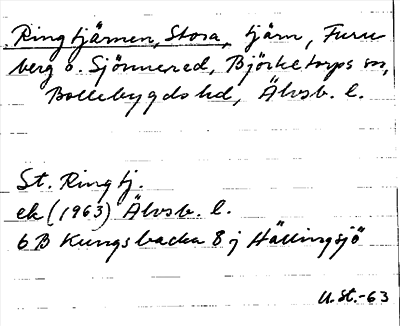 Ringtjärnen, Stora, tjärn, Furu-
berg o. Sjönnered, Björketorps sn,
Bollebygds hd, Älvsb. l.
St. Ringtj.
ek (1963) Älvsb. l.
6 B Kungsbacka 8 j Hällingsjö
U.St.-63